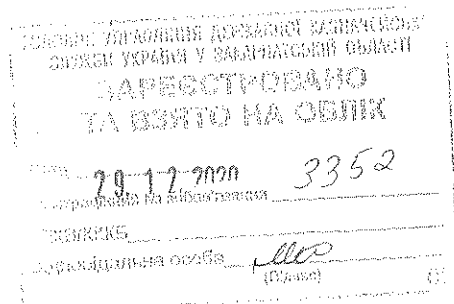 УПРАВЛІННЯ ДЕРЖАВНОЇ КАЗНАЧЕЙСЬКОЇ
СЛУЖБИ УКРАЇНИ У ЗАКАРПАТСЬКІЙ ОБЛАСТІ
ЗАРЕЄСТРОВАНО
ТА ВЗЯТО НА ОБЛІК
29.12.2020 3352
№ зобов'язання
особа
(Підпис)